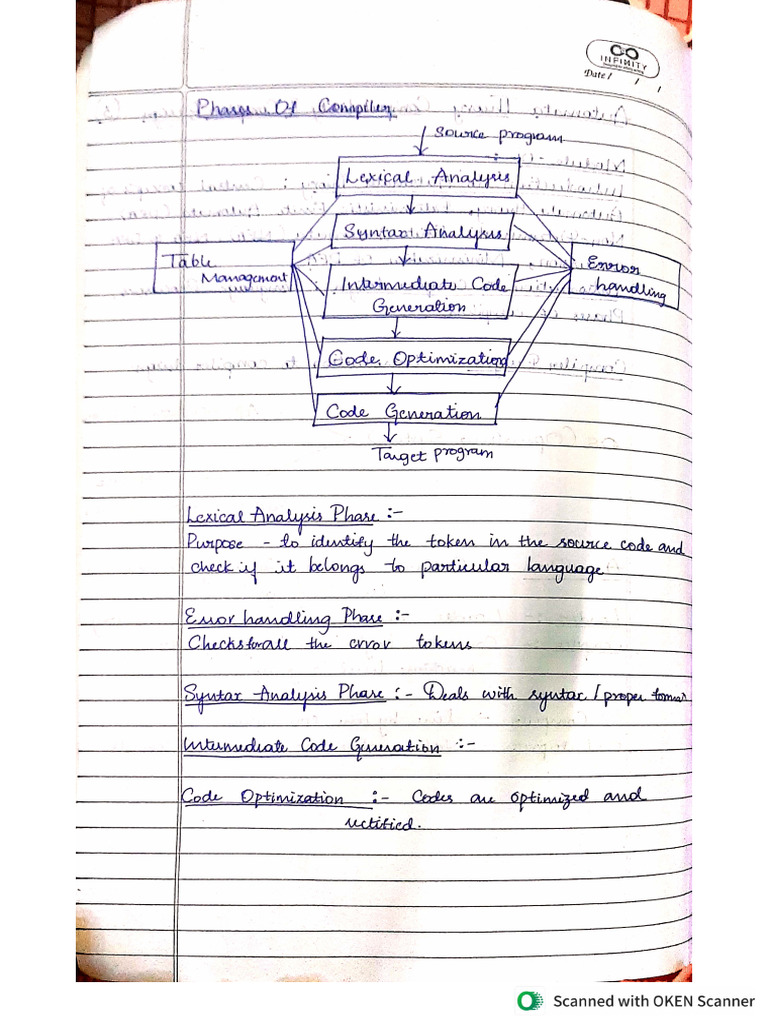 INFINITY
Date / / /
Phases Of Compiler
Source program
Lexical Analysis
Syntax Analysis
Table
Management
Error
handling
Intermediate Code
Generation
Code Optimization
Code Generation
Target program
Lexical Analysis Phase :-
Purpose - to identify the token in the source code and
check if it belongs to particular language
Error handling Phase :-
Checks for all the error tokens
Syntax Analysis Phase :- Deals with syntax / proper format
Intermediate Code Generation :-
Code Optimization :- Codes are optimized and
rectified.
Scanned with OKEN Scanner